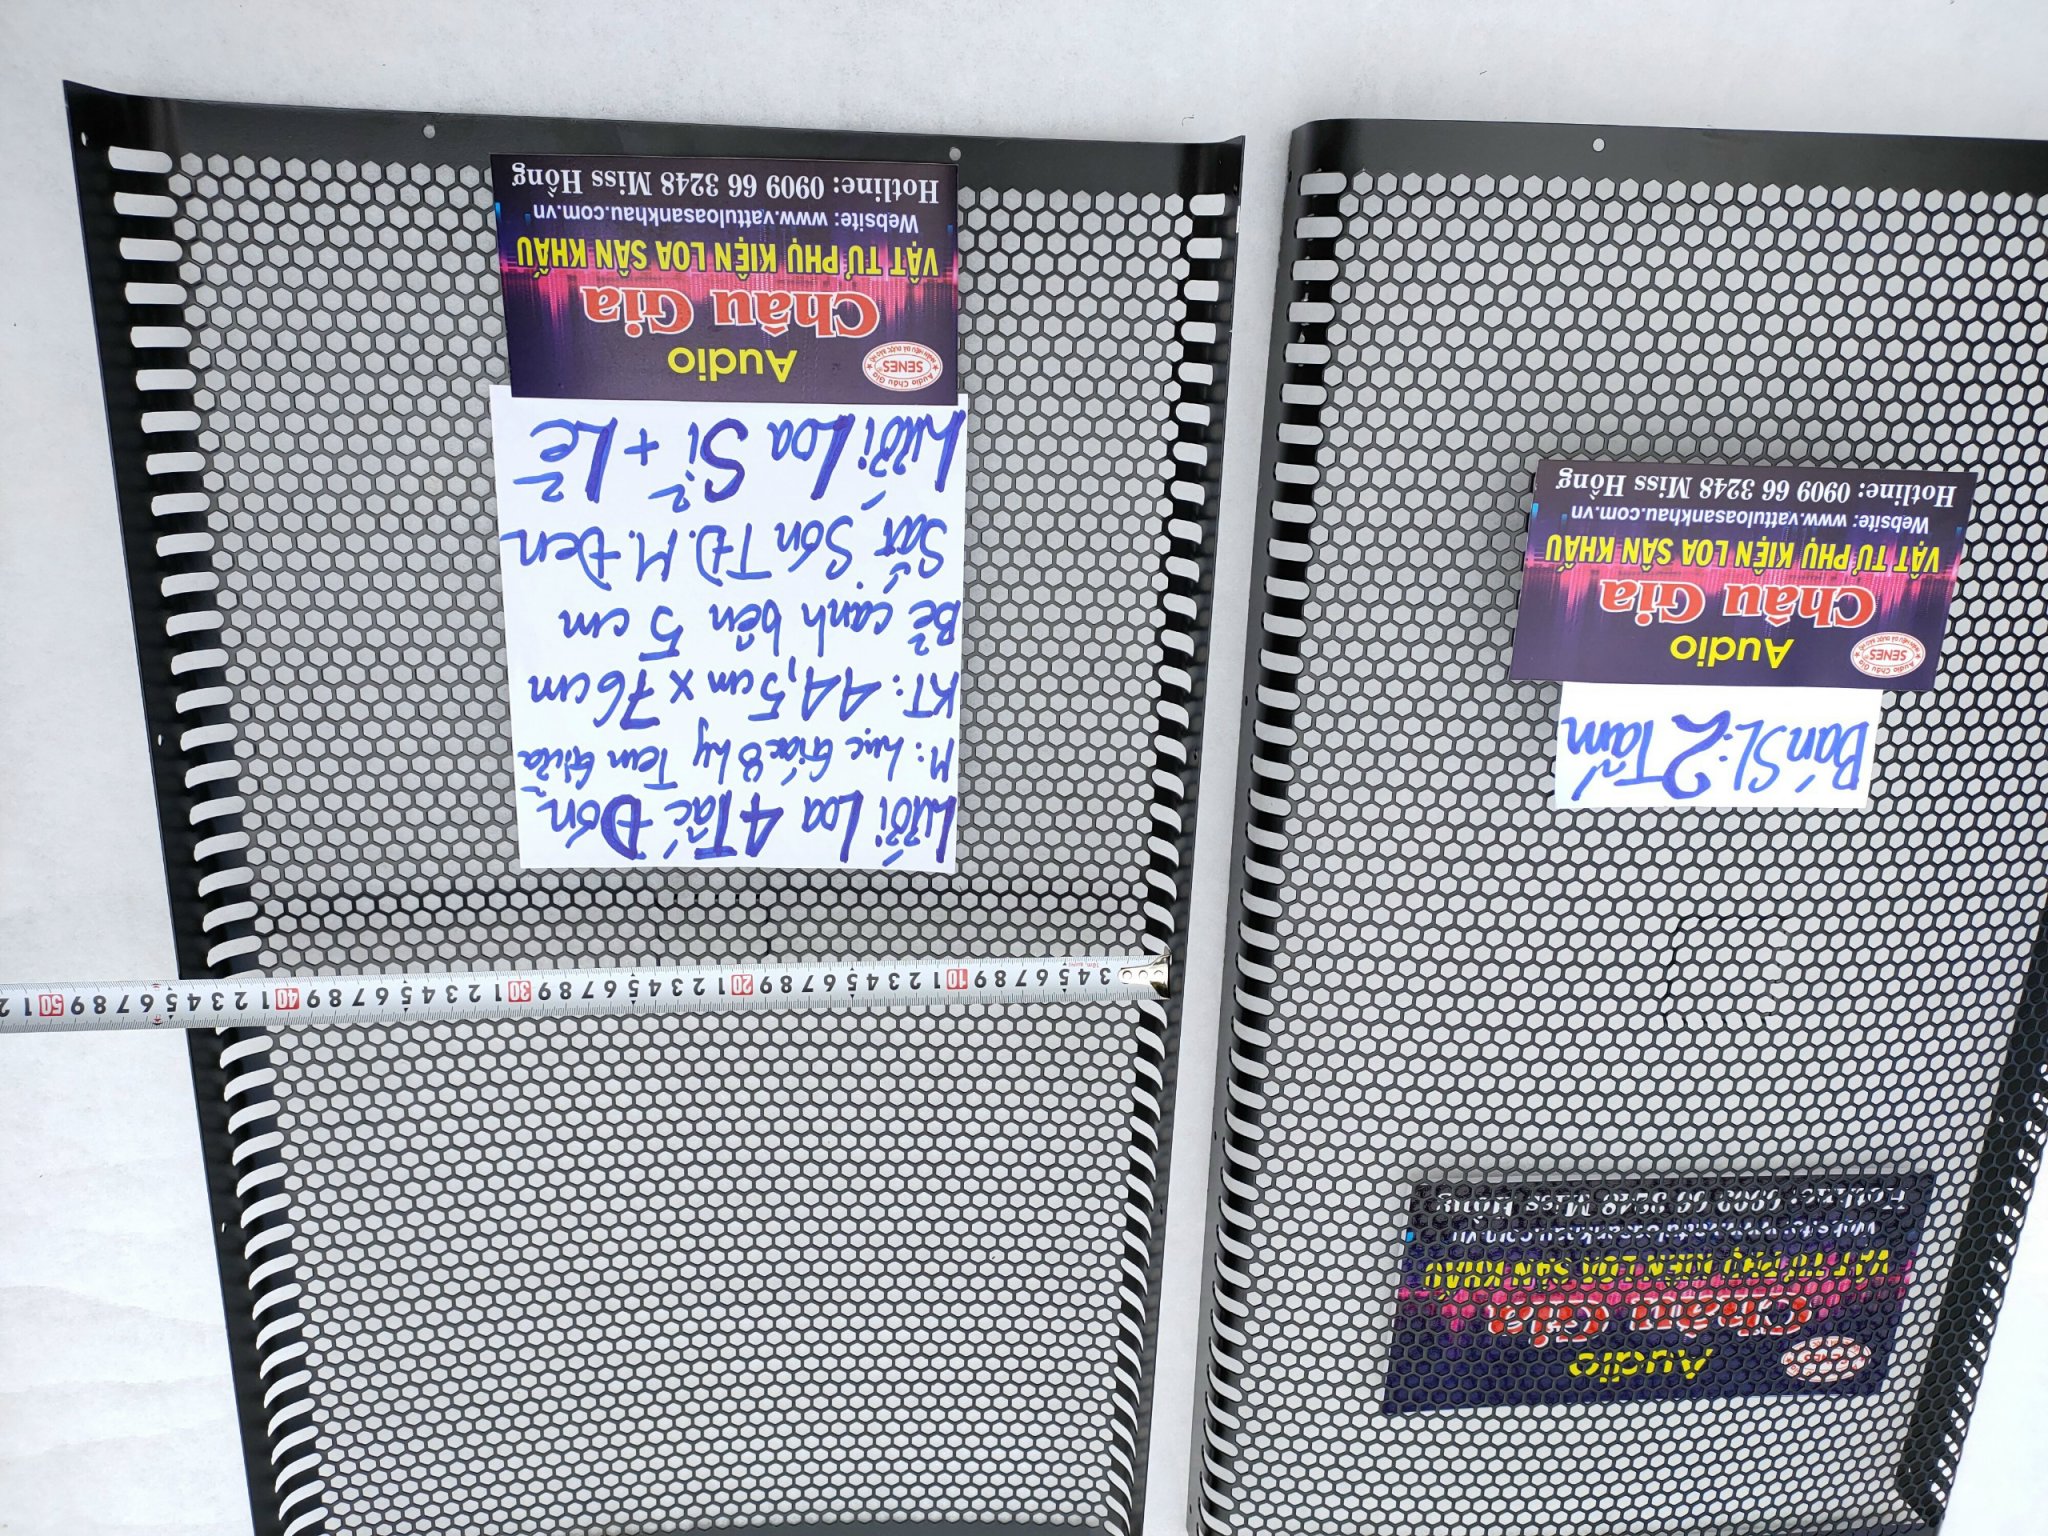 SENES®
Audio Châu Gia
NHÃN HIỆU ĐÃ ĐƯỢC BẢO HỘ
Audio
Châu Gia
VẬT TƯ PHỤ KIỆN LOA SÂN KHẤU
Website: www.vattuloasankhau.com.vn
Hotline: 0909 66 3248 Miss Hồng
3 4 5 6 7 8 9 10 1 2 3 4 5 6 7 8 9 20 1 2 3 4 5 6 7 8 9 30 1 2 3 4 5 6 7 8 9 40 1 2 3 4 5 6 7 8 9 50 1 2
Bán SL: 2 Tấm
Audio Châu Gia
SENES®
NHÃN HIỆU ĐÃ ĐƯỢC BẢO HỘ
Audio
Châu Gia
VẬT TƯ PHỤ KIỆN LOA SÂN KHẤU
Website: www.vattuloasankhau.com.vn
Hotline: 0909 66 3248 Miss Hồng
Lưới Loa 4 Tấc Đơn
M: Lục Giác 8 Ly Tem Giữa
KT: 44,5cm x 76cm
Bẻ cạnh bên 5 cm
Sắt Sơn TĐ.M.Đen
Lưới Loa Sỉ + Lẻ
Audio Châu Gia
SENES®
NHÃN HIỆU ĐÃ ĐƯỢC BẢO HỘ
Audio
Châu Gia
VẬT TƯ PHỤ KIỆN LOA SÂN KHẤU
Website: www.vattuloasankhau.com.vn
Hotline: 0909 66 3248 Miss Hồng